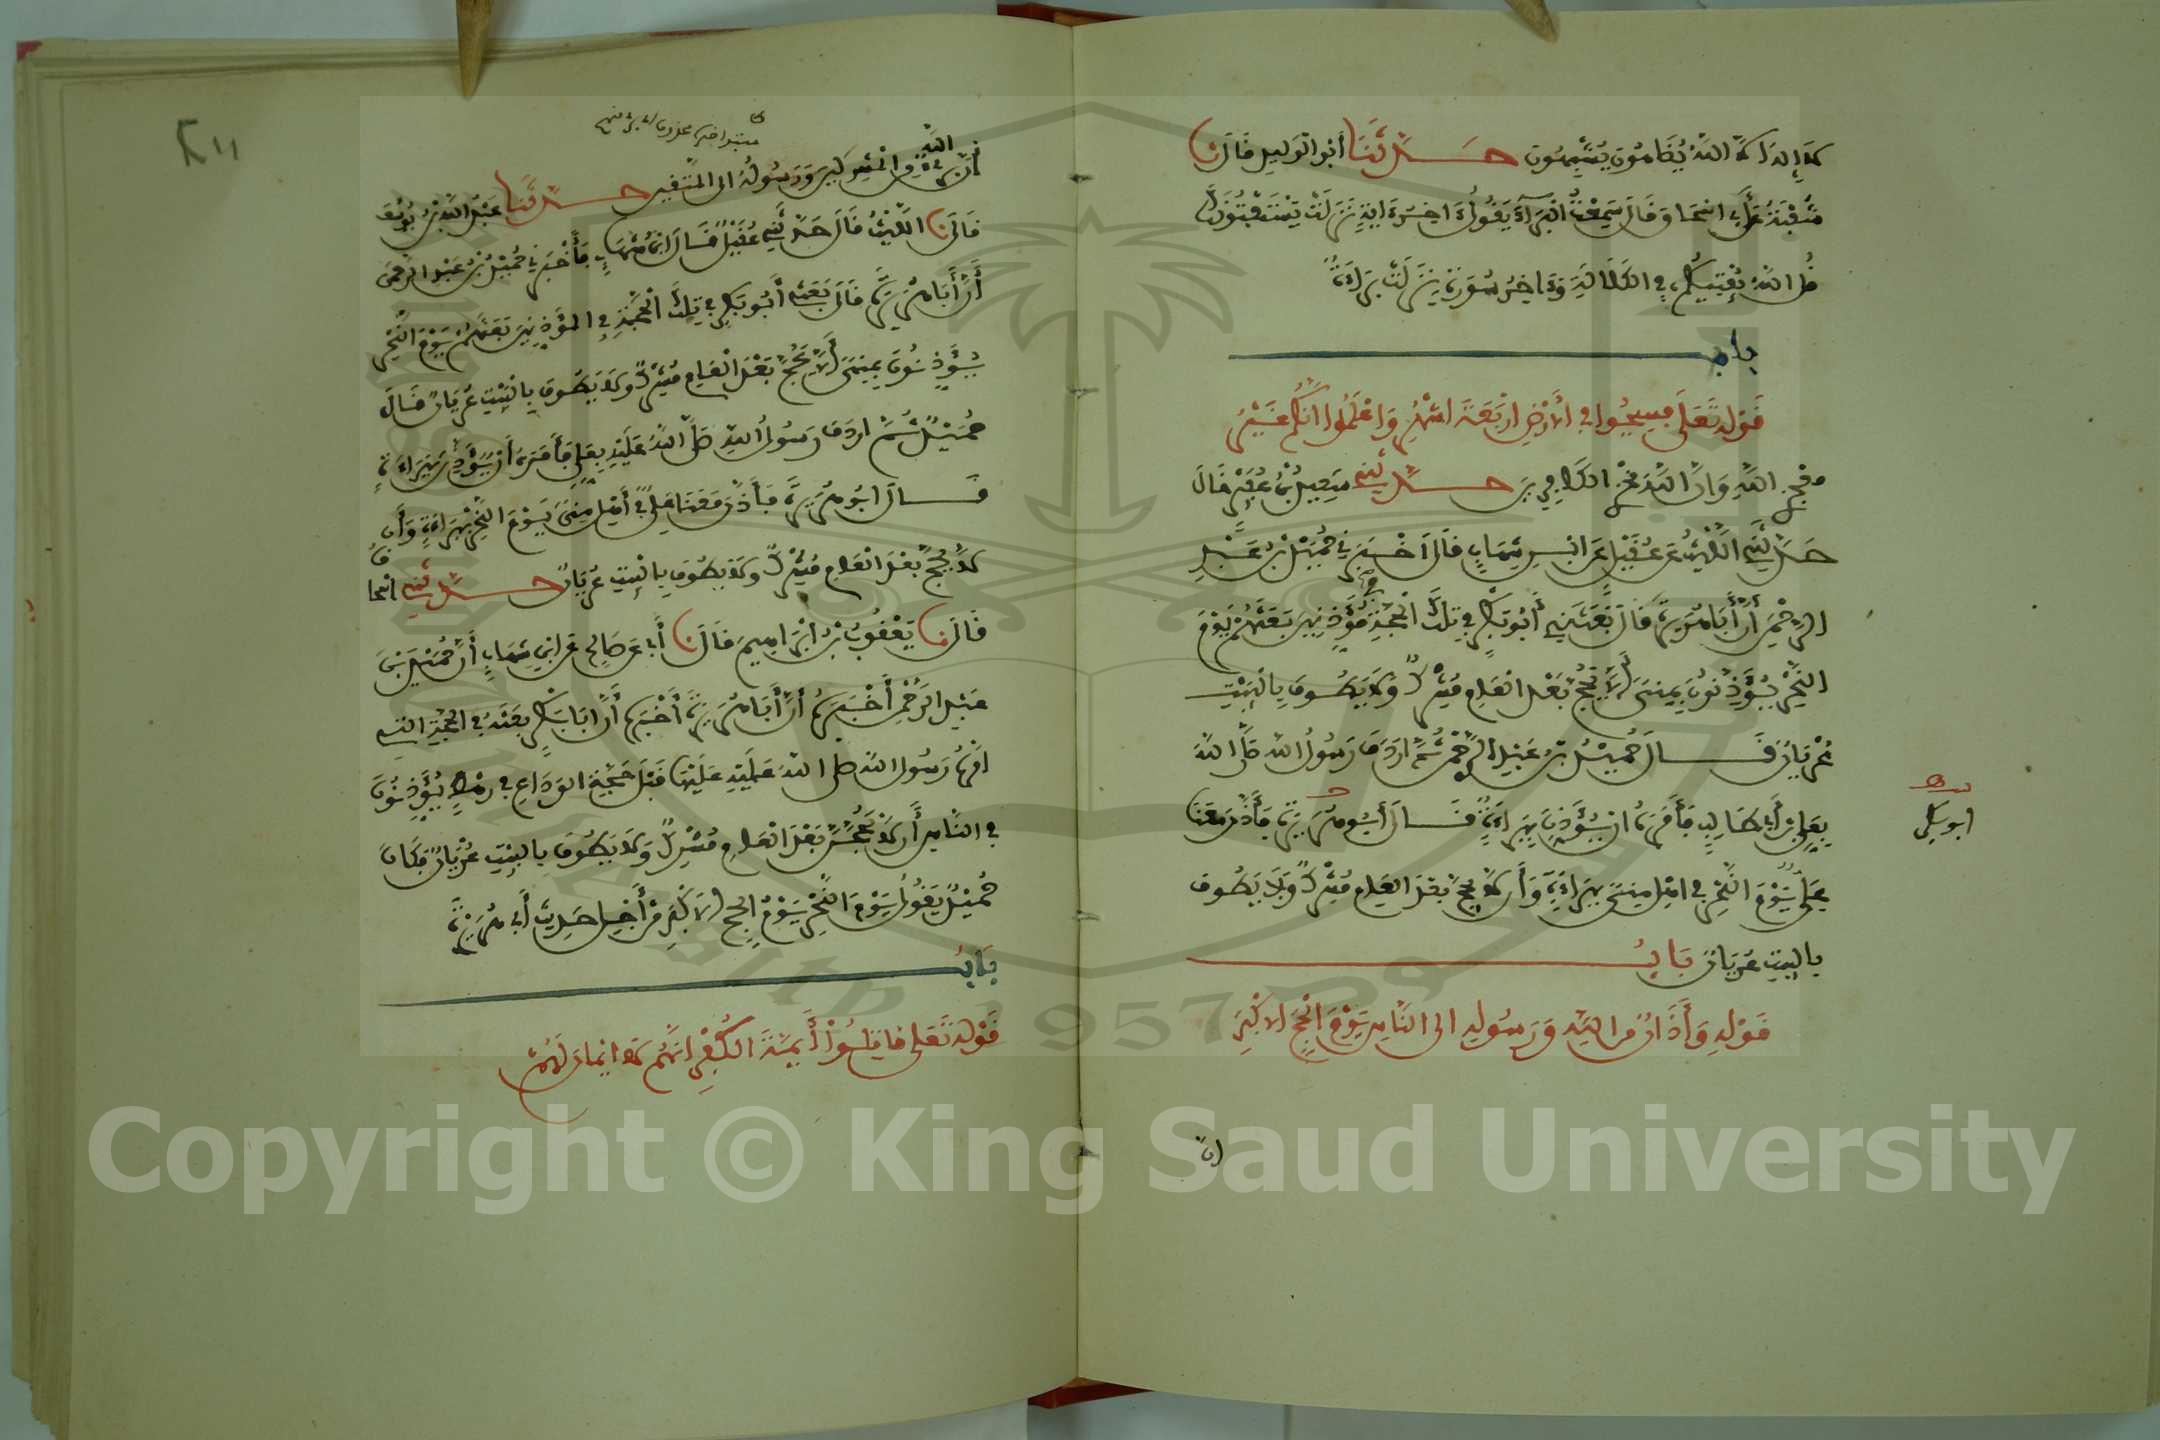 لا إله إلا الله يضاهون يشبهون حدثنا أبو الوليد قال نا
شعبة عن أبي اسحاق قال سمعت البرآء يقول ءاخر ءاية نزلت يستفتونك
قل الله يفتيكم في الكلالة وءاخر سورة نزلت براءة
باب
قوله تعلى فسيحوا في الأرض اربعة اشهر واعلموا انكم غير
معجزي الله وان الله مخزي الكافرين حدثني سعيد بن عفير قال
حدثني الليث عن عقيل عن ابن شهاب قال اخبرني حميد بن عبد
الرحمن أن أبا هريرة قال بعثني أبو بكر في تلك الحجة في مؤذنين بعثهم يوم
النحر يؤذنون بمنى ألا يحج بعد العام مشرك ولا يطوف بالبيت
عريان قال حميد بن عبد الرحمن ثم اردف رسول الله صلى الله
بعلي بن أبي طالب فأمره ان يؤذن ببراءة قال أبو هريرة فأذن معنا
علي يوم النحر في اهل منى ببراءة وأن لا يحج بعد العام مشرك ولا يطوف
بالبيت عريان باب
قوله وأذان من الله ورسوله الى الناس يوم الحج الاكبر
ابو بكر
ان
أن الله بريء من المشركين ورسوله الى المتقين حدثنا عبد الله بن يوسف
قال نا الليث قال حدثني عقيل قال ابن شهاب فأخبرني حميد بن عبد الرحمن
أن أبا هريرة قال بعثني أبو بكر في تلك الحجة في المؤذنين بعثهم يوم النحر
يؤذنون بمنى ألا يحج بعد العام مشرك ولا يطوف بالبيت عريان قال
حميد ثم اردف رسول الله صلى الله عليه بعلي فأمره أن يؤذن ببراءة
قال ابو هريرة فأذن معنا علي في أهل منى يوم النحر ببراءة وأن
لا يحج بعد العام مشرك ولا يطوف بالبيت عريان حدثني اسحاق
قال نا يعقوب بن ابراهيم قال نا أبي عن صالح عن ابن شهاب أن حميد بن
عبد الرحمن أخبره أن أبا هريرة أخبره أن ابا بكر بعثه في الحجة التي
امره رسول الله صلى الله عليه عليها قبل حجة الوداع في رهط يؤذنون
في الناس أن لا يحجن بعد العام مشرك ولا يطوف بالبيت عريان فكان
حميد يقول يوم النحر يوم الحج الاكبر من أجل حديث أبي هريرة
باب
قوله تعلى فقاتلوا أيمة الكفر انهم لا ايمان لهم
Copyright © King Saud University
1957